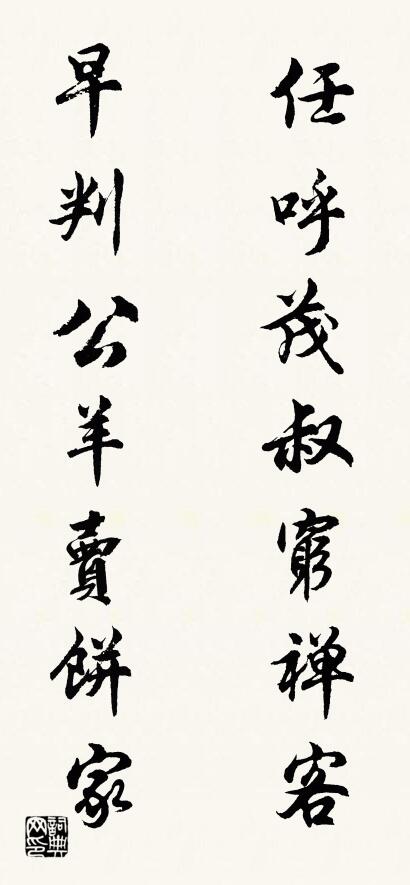 任呼茂叔窮禅客
早判公羊賣餅家
詞典網印